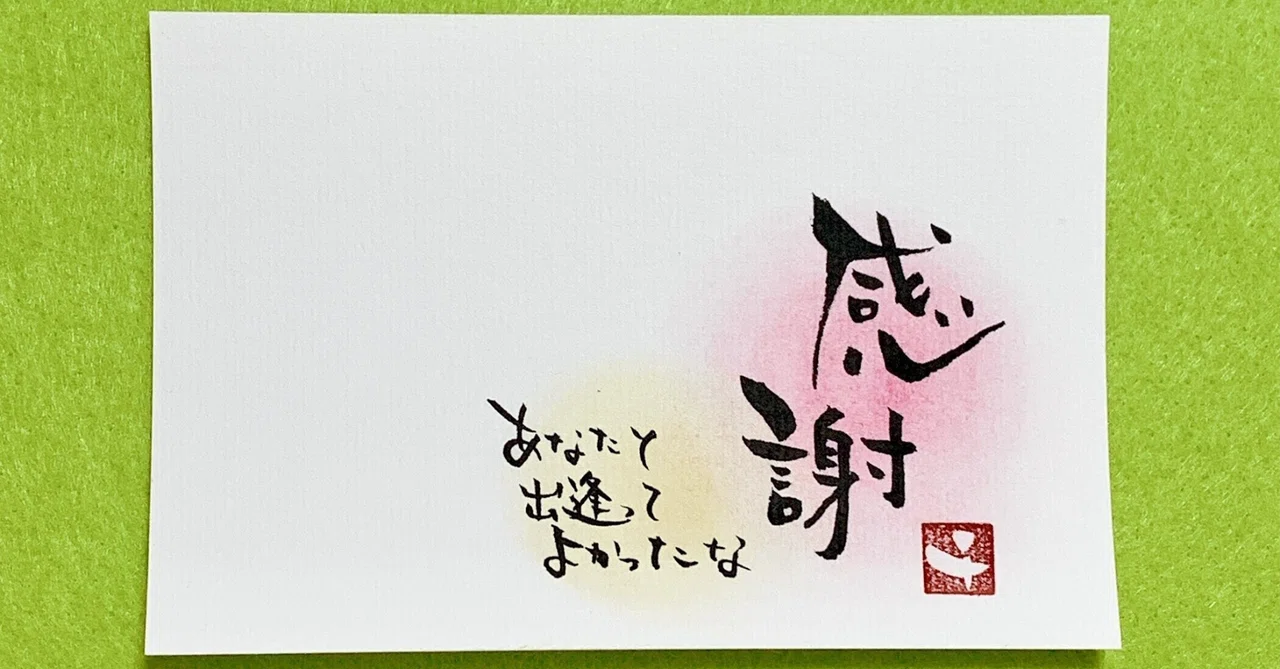 感
謝
あなたと
出逢って
よかったな